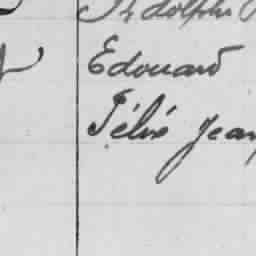 Adolphe
Edouard
Félix Jean